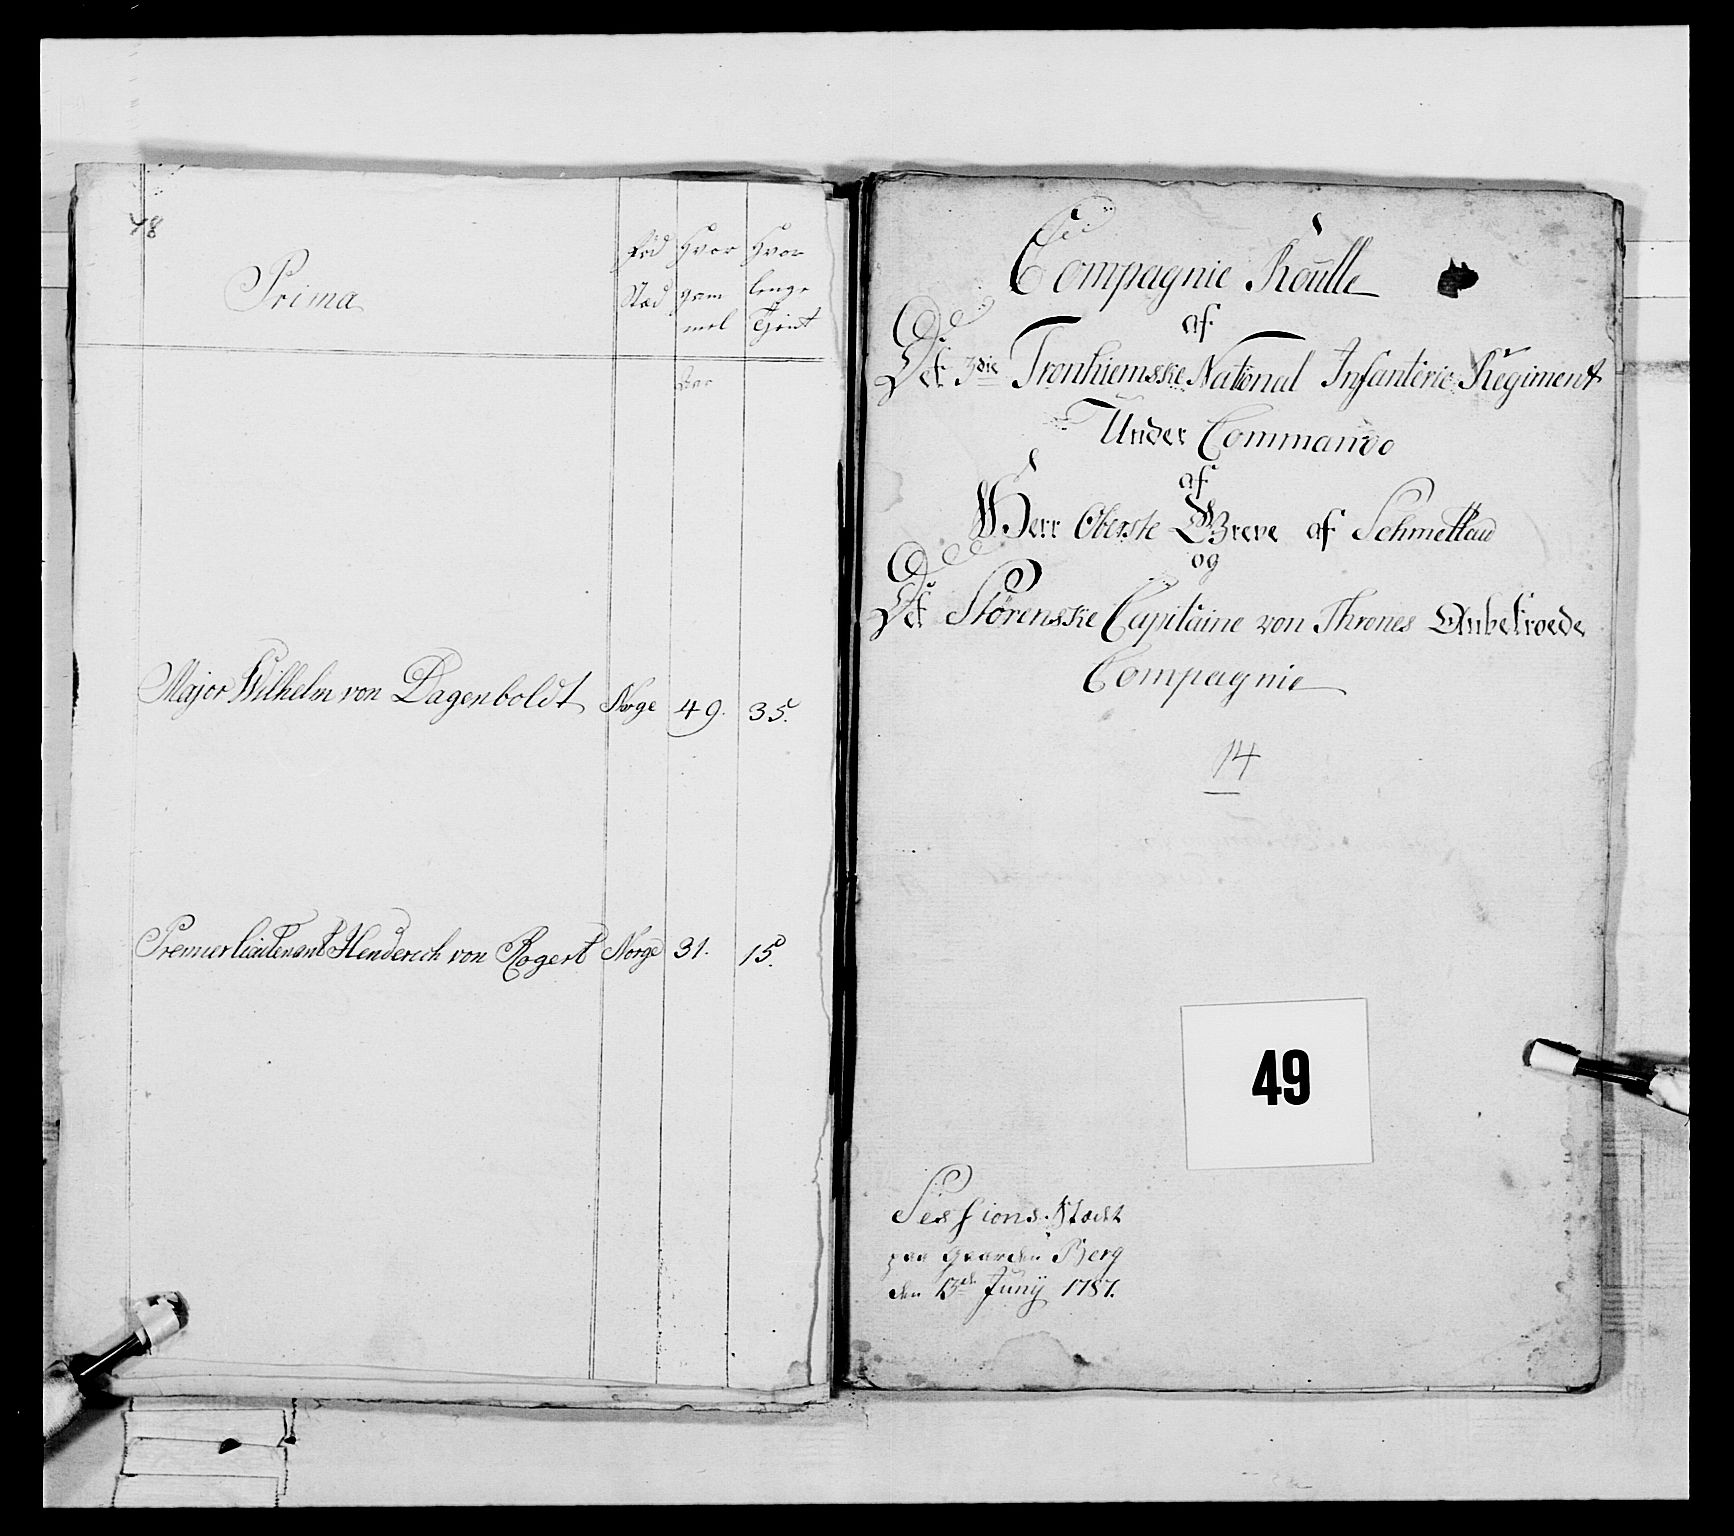 48
Prima
Fød Hvor Hvor
Stæd gam lenge
mel Tjent
Aar
Major Wilhelm von Dagenboldt Norge 49. 35.
Premierlieutenant Henderich von Rogert Norge 31. 15.
Compagnie Roulle
af
Det 3die Tronhiemske National Infanterie Regiment
Under Commando
af
Herr Oberste Greve af Schmettau
og
Det Størenske Capitaine von Thrones Anbetroede
Compagnie
14
49
Sessions Stædet
paa Gaarden Berg
den 13de Junij 1787.